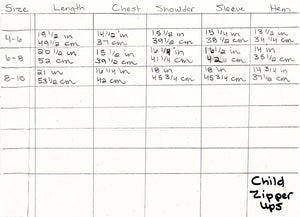 Size Length Chest Shoulder Sleeve Hem
19 1/2 in 14 1/2 in 15 1/2 in 15 1/4 in 13 1/2 in
4-6 49 1/2 cm 37 cm 39 1/2 cm 38 1/2 cm 34 1/4 cm
20 1/2 in 15 1/2 in 16 1/4 in 16 1/2 in 14 in
6-8 52 cm 39 1/2 cm 41 1/4 cm 42 cm 35 1/2 cm
8-10 21 in 16 1/4 in 18 in 18 in 14 3/4 in
53 1/2 cm 42 cm 45 3/4 cm 45 3/4 cm 37 1/2 cm
Child
Zipper
Ups